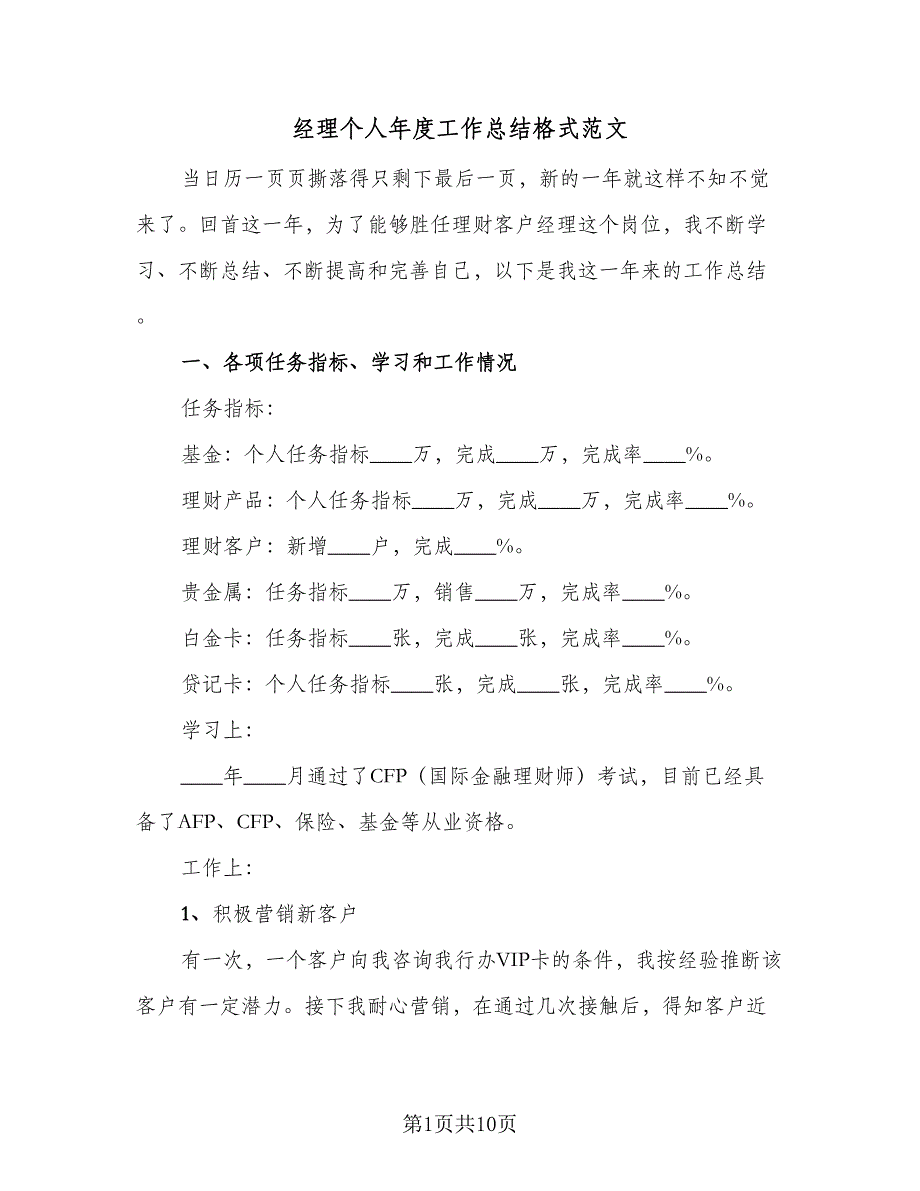 经理个人年度工作总结格式范文
当日历一页页撕落得只剩下最后一页，新的一年就这样不知不觉
来了。回首这一年，为了能够胜任理财客户经理这个岗位，我不断学
习、不断总结、不断提高和完善自己，以下是我这一年来的工作总结
。
一、各项任务指标、学习和工作情况
任务指标：
基金：个人任务指标____万，完成____万，完成率____%。
理财产品：个人任务指标____万，完成____万，完成率____%。
理财客户：新增____户，完成____%。
贵金属：任务指标____万，销售____万，完成率____%。
白金卡：任务指标____张，完成____张，完成率____%。
贷记卡：个人任务指标____张，完成____张，完成率____%。
学习上：
____年____月通过了CFP（国际金融理财师）考试，目前已经具
备了AFP、CFP、保险、基金等从业资格。
工作上：
1、积极营销新客户
有一次，一个客户向我咨询我行办VIP卡的条件，我按经验推断该
客户有一定潜力。接下我耐心营销，在通过几次接触后，得知客户近
第1页共10页